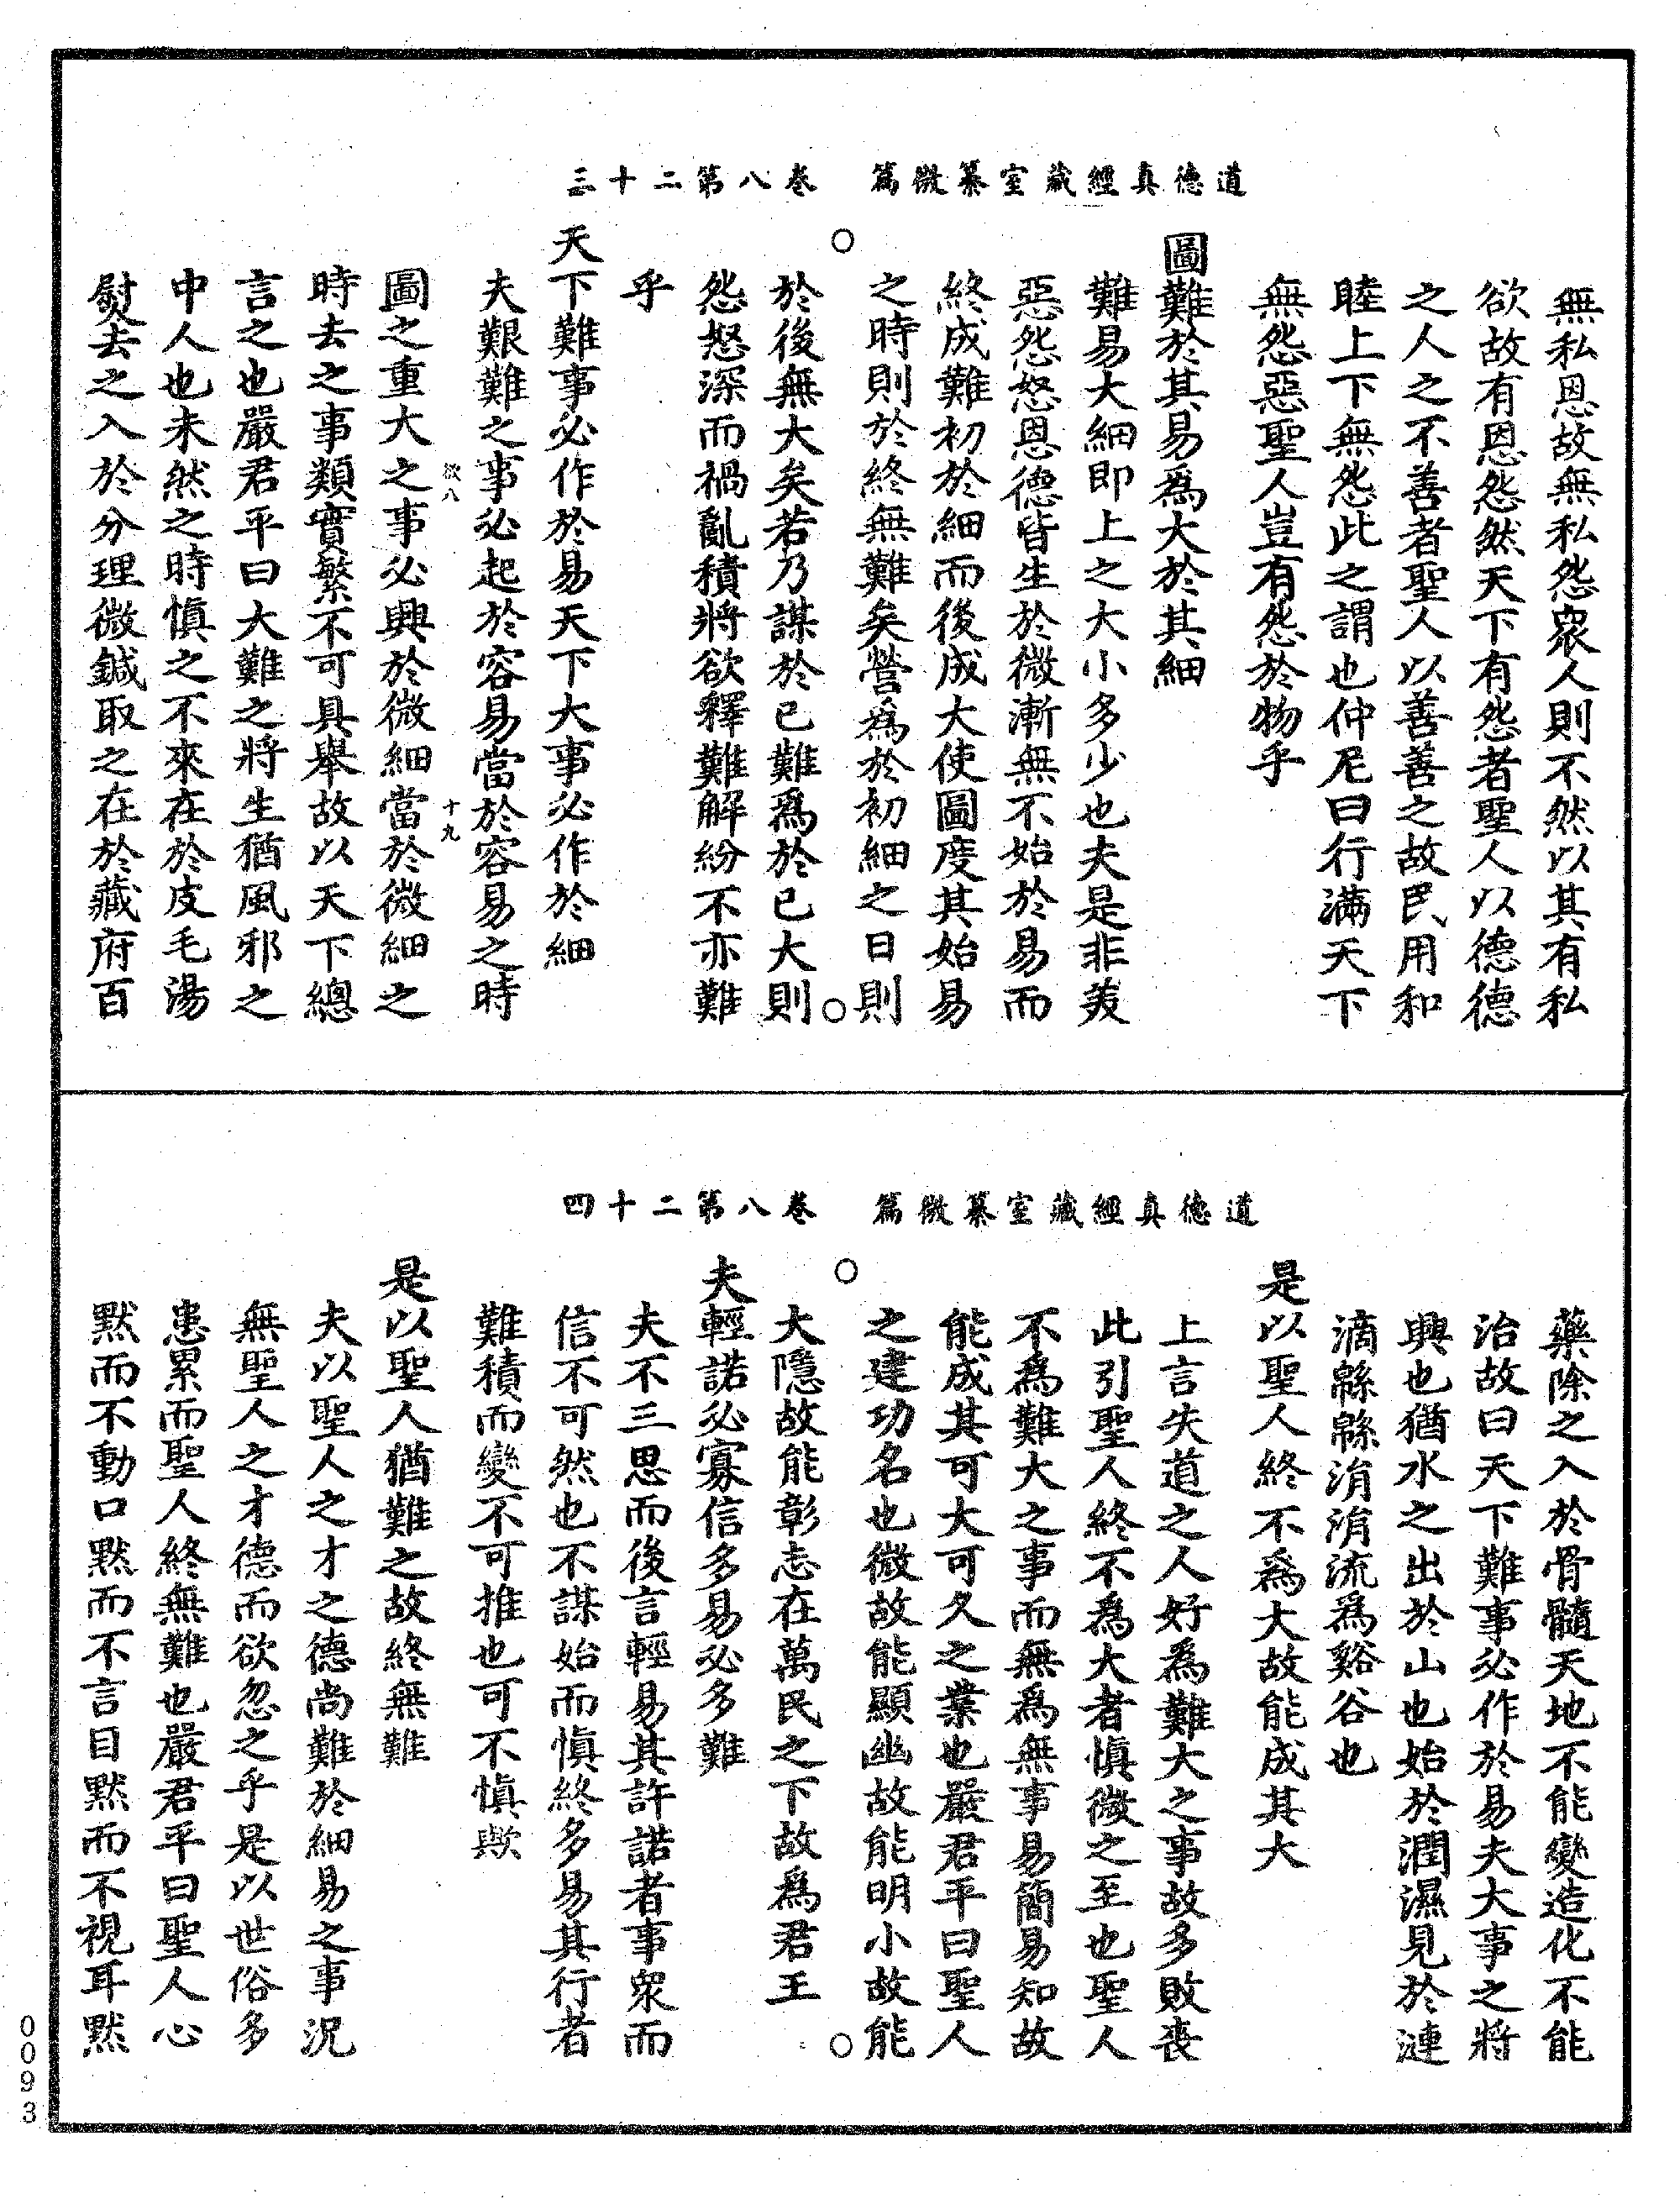 道德真經藏室纂微篇　卷八第二十三
無私恩故無私怨眾人則不然以其有私
欲故有恩怨然天下有怨者聖人以德德
之人之不善者聖人以善善之故民用和
睦上下無怨此之謂也仲尼曰行滿天下
無怨惡聖人豈有怨於物乎
圖難於其易為大於其細
難易大細即上之大小多少也夫是非美
惡怨怒恩德皆生於微漸無不始於易而
終成難初於細而後成大使圖度其始易
之時則於終無難矣營為於初細之日則
於後無大矣若乃謀於已難為於已大則
怨怒深而禍亂積將欲釋難解紛不亦難
乎
天下難事必作於易天下大事必作於細
夫艱難之事必起於容易當於容易之時
欲八　十九
圖之重大之事必興於微細當於微細之
時去之事類實繁不可具舉故以天下總
言之也嚴君平曰大難之將生猶風邪之
中人也未然之時慎之不來在於皮毛湯
熨去之入於分理微鍼取之在於藏府百
道德真經藏室纂微篇　卷八第二十四
藥除之入於骨髓天地不能變造化不能
治故曰天下難事必作於易夫大事之將
興也猶水之出於山也始於潤濕見於漣
滴緜緜涓涓流為谿谷也
是以聖人終不為大故能成其大
上言失道之人好為難大之事故多敗喪
此引聖人終不為大者慎微之至也聖人
不為難大之事而無為無事易簡易知故
能成其可大可久之業也嚴君平曰聖人
之建功名也微故能顯幽故能明小故能
大隱故能彰志在萬民之下故為君王
夫輕諾必寡信多易必多難
夫不三思而後言輕易其許諾者事眾而
信不可然也不謀始而慎終多易其行者
難積而變不可推也可不慎歟
是以聖人猶難之故終無難
夫以聖人之才之德尚難於細易之事況
無聖人之才德而欲忽之乎是以世俗多
患累而聖人終無難也嚴君平曰聖人心
默而不動口默而不言目默而不視耳默
0093